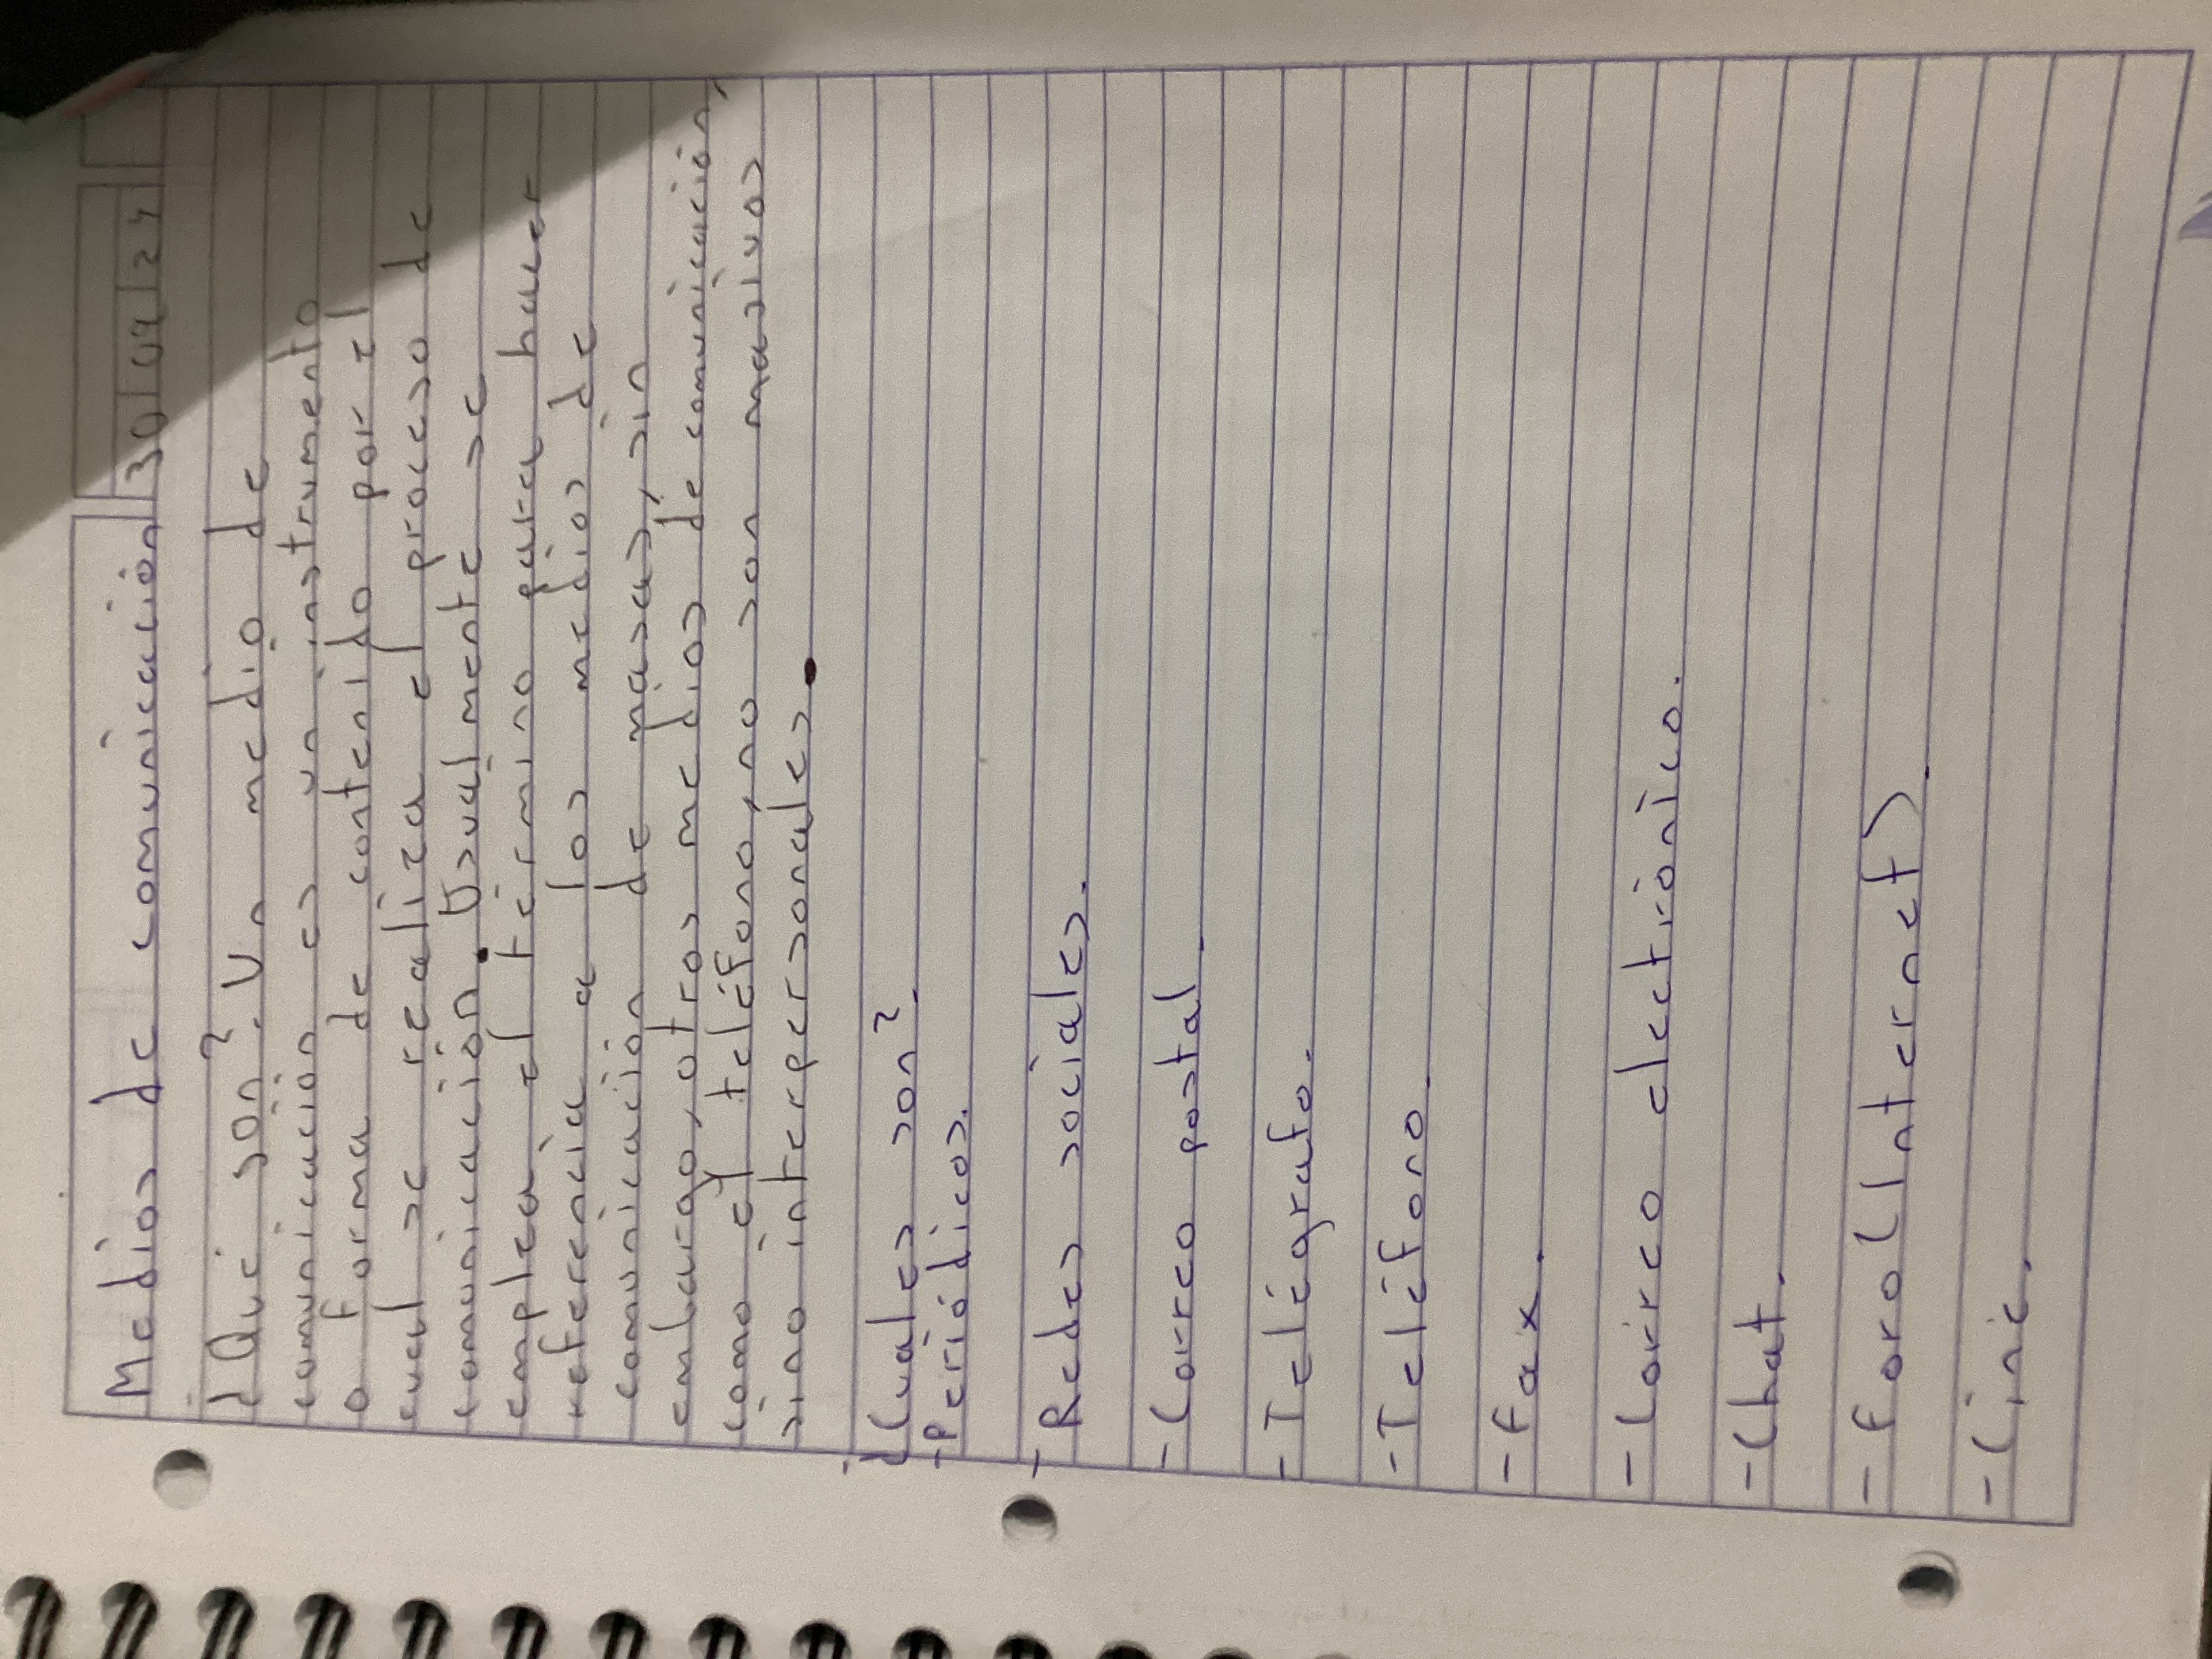 Medios de comunicación 30 09 24
¿Qué són?. Un medio de
comunicación es un instrumento
o forma de contenido por el
cual se realiza el proceso de
comunicación. Usualmente se
emplea el término para hacer
referencia a los medios de
comunicación de masas, sin
embargo, otros medios de comunicación,
como el teléfono, no son masivos
sino interpersonales.
¿Cuales son?.
-Periódicos.
-Redes sociales.
-Correo postal.
-Telégrafo.
-Teléfono.
-Fax.
-Correo electrónico.
-Chat.
-Foro(Internet).
-Cine.